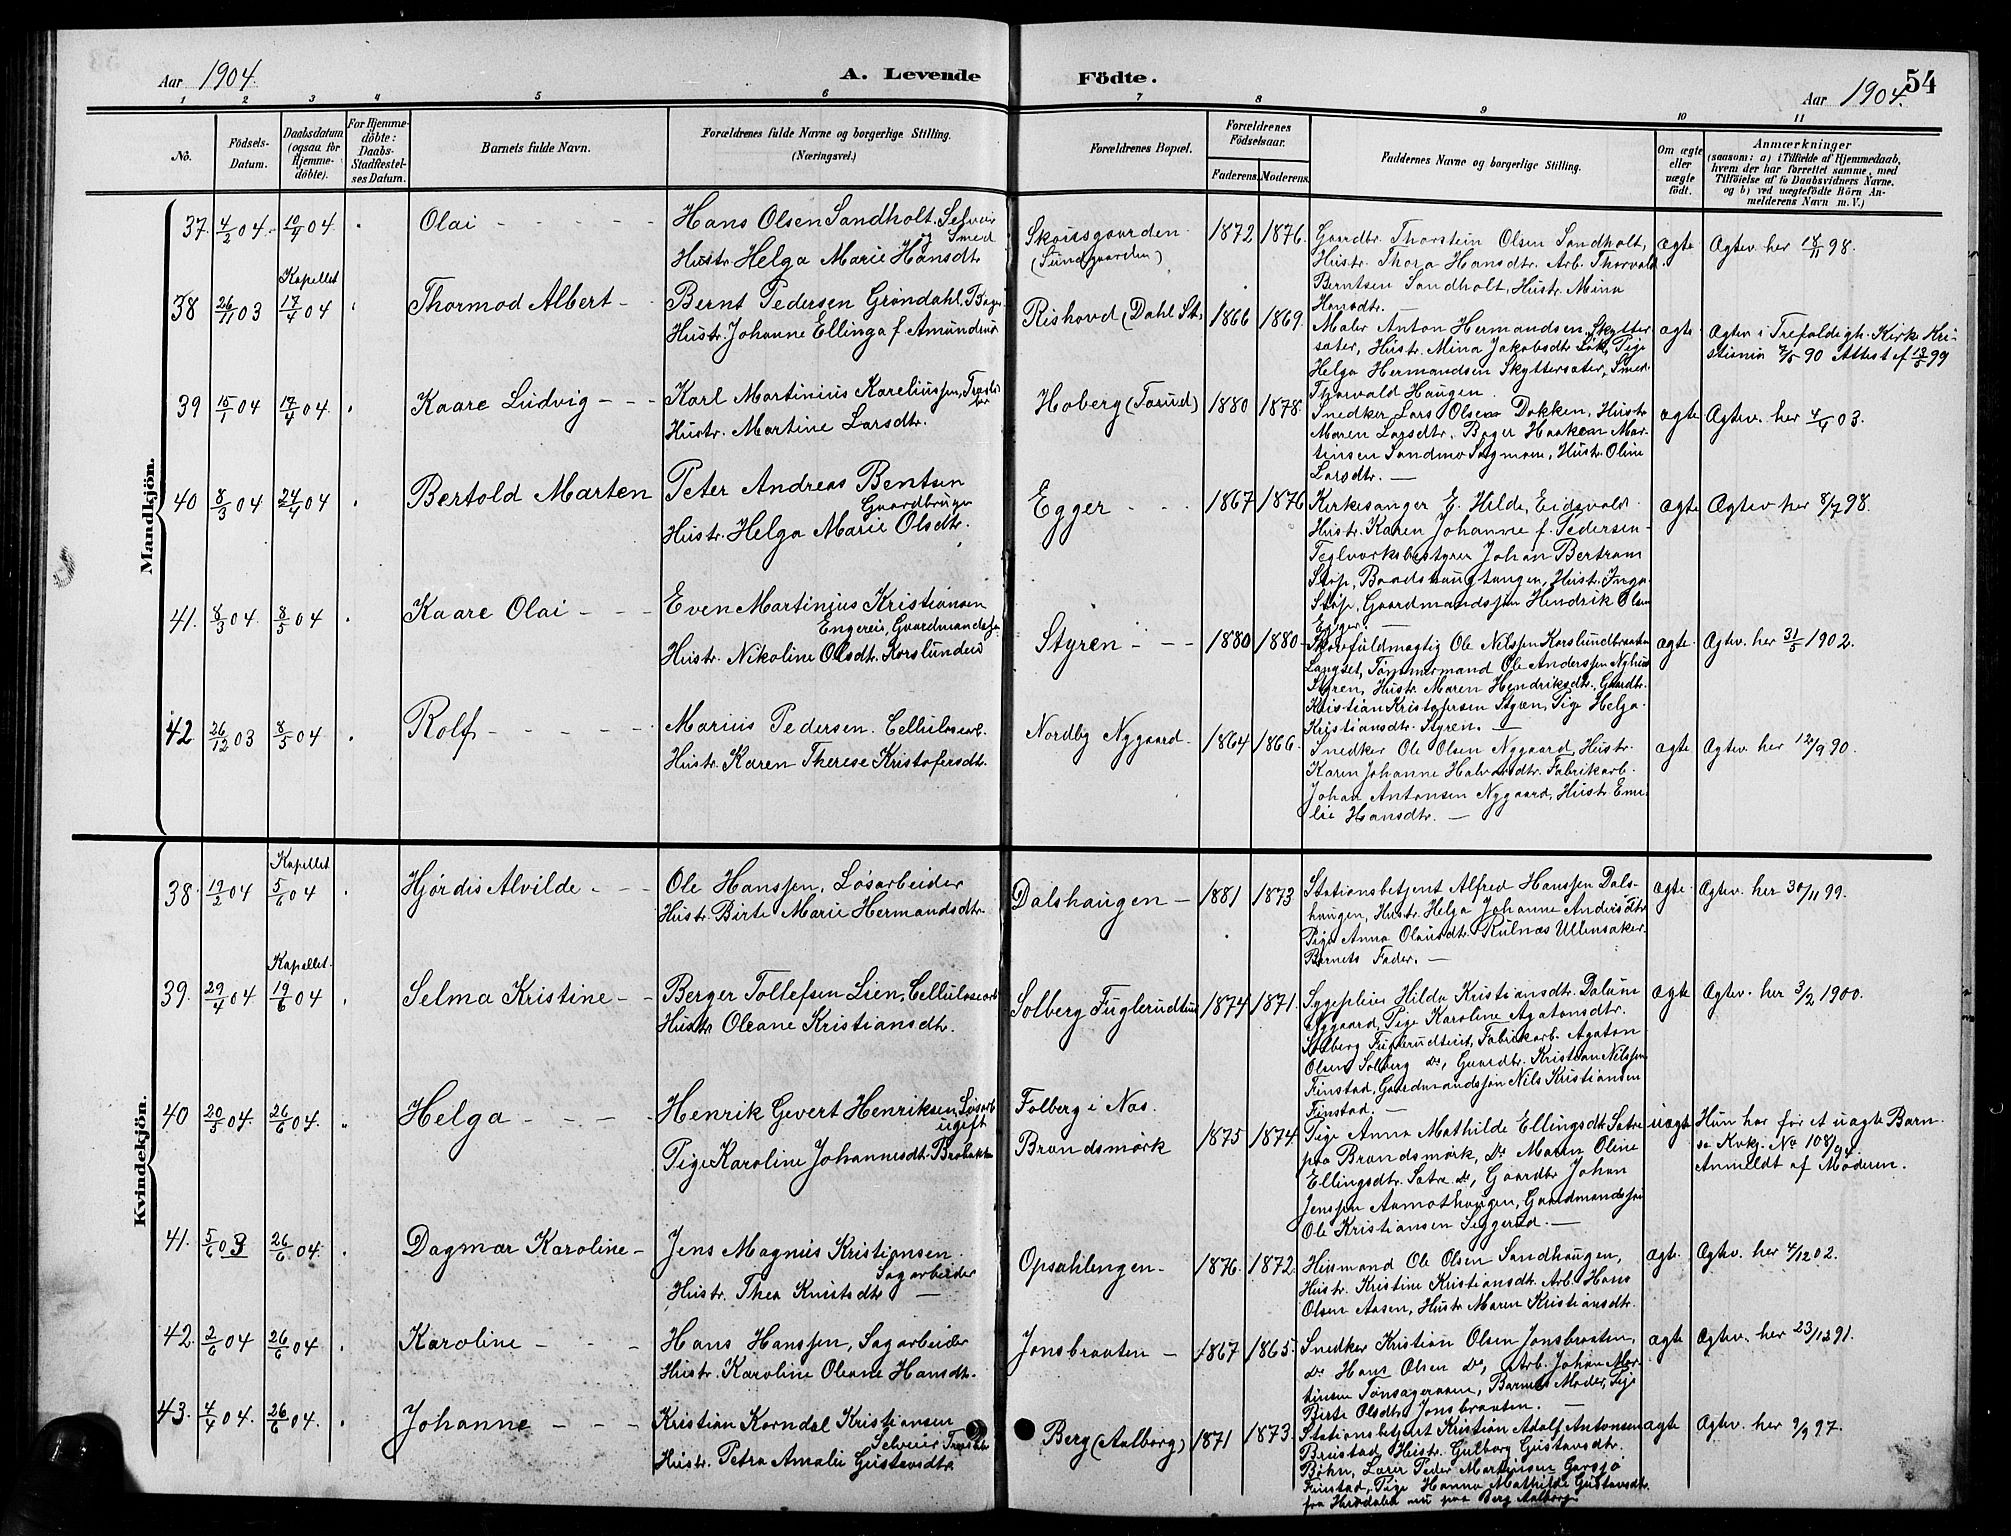 Aar 1904.
A. Levende Födte.
Aar 1904.
54
1 2 3 4 5 6 7 8 9 10 11
No.
Födsels-
Datum.
Daabsdatum
(ogsaa for
Hjemme-
döbte).
For Hjemme-
döbte:
Daabs-
Stadfestel-
ses Datum.
Barnets fulde Navn.
Forældrenes fulde Navne og borgerlige Stilling.
(Næringsvei.)
Forældrenes Bopæl.
Forældrenes
Födselsaar.
Faderens. Moderens.
Faddernes Navne og borgerlige Stilling.
Om ægte
eller
uægte
født.
Anmærkninger
(saasom: a) i Tilfælde af Hjemmedaab,
hvem der har forrettet samme, med
Tilföielse af to Daabsvidners Navne,
og b) ved uægtefödte Börn An-
melderens Navn m. V.)
Mandkjön.
37. 4/2 04. 10/4 04 Olai
Hans Olsen Sandholt, Selveier
og Smed
Hustr. Helga Marie Hansdtr.
Skousgaarden
(Sundgaarden)
1872 1876.
Gaardbr. Thorstein Olsen Sandholt,
Hustr. Thora Hansdtr. Arb. Thorvald
Berntsen Sandholt, Hustr. Mina
Hansdtr.
ægte Ægtev. her 18/11 98.
Kapellet
38 26/11 03 17/4 04 Thormod Albert
Bernt Pedersen Grøndahl, Bager
Hustr. Johanne Ellinga f. Amundrud
Rishovd (Dahl St.)
1866 1869.
Maler Anton Hermandsen Skytter-
sæter, Hustr. Mina Jakobsdtr. Løk, Pige
Helga Hermandsen Skyttersæter, Smed
Thorvald Haugen.
ægte Ægtev i Trefoldigh. Kirke Kri-
stiania 7/5 90 Attest af 13/5 99
39 15/1 04 17/4 04. Kaare Ludvig
Karl Martinius Kareliussen,
Hustr. Martine Larsdtr.
Hoberg (Tarud)
1880 1878.
Snedker Lars Olsen Dokken, Hustr
Maren Larsdtr. Bager Haakon Mar-
tinsen Sandmo Sagmoen, Hustr. Oline
Larsdtr.
ægte Ægtev. her 4/1 03.
40 8/3 04 24/4 04 Bertold Marten
Peter Andreas Bentsen
Gaardbruger
Hustr. Helga Marie Olsdtr.
Egger
1867 1876
Kirkesanger E. Hilde, Eidsvold.
Hustr. Karen Johanne f. Pedersen
Teglværksbestyrer Johan Bertram
Støp, Baadshaugtangen, Hustr. Inga
Støp, Gaardmandssøn Hendrik Olsen
Egger.
ægte Ægtev her 8/7 98.
41. 8/3 04. 8/5 04 Kaare Olai
Even Martinius Kristiansen
Engereie, Gaardmandssøn
Hustr. Nikoline Olsdt. Korslundeie
Styren
1880 1880
Skovfuldmægtig Ole Nilssen Korslundbraaten
Langset, Tømmermand Ole Anderssen Nyhus
Styren, Hustr. Maren Hendriksdtr. Gaardbr.
Kristian Kristofersen Styren, Pige Helga
Kristiansdtr. Styren.
ægte. Ægtev. her 31/5 1902.
42 26/12 03 8/5 04 Rolf
Marius Pedersen. Cellulosearb.
Hustr. Karen Therese Kristofersdtr.
Nordby Nygaard.
1864 1866.
Snedker Ole Olsen Nygaard, Hustr.
Karen Johanne Halvorsdtr. Fabrikarb.
Johan Antonsen Nygaard, Hustr. Eme-
lie Hansdtr.
ægte Ægtev. her 12/9 90.
Kvindekjön.
Kapellet
38. 19/2 04 5/6 04 Hjørdis Alvilde
Ole Hanssen, Løsarbeider
Hustr. Birte Marie Hermandsdtr.
Dalshaugen
1881 1873
Stationsbetjent Alfred Hanssen Dals-
haugen, Hustr. Helga Johanne Andersdtr
Pige Anna Olausdtr. Kulnæs Ullensaker.
Barnets Fader.
ægte. Ægtev. her 30/11 99.
Kapellet.
39. 29/4 04 19/6 04 Selma Kristine
Berger Tollefsen Lien, Cellulosearb.
Hustr Oleane Kristiansdtr.
Solberg Fuglerudtun
1874 1871.
Sygepleier Hilda Kristiansdtr. Dalune
Nygaard, Pige Karoline Agatonsdtr.
Solberg Fuglerudteiet, Fabrikarb. Agaton
Olsen Solberg do, Gaardbr. Kristian Nilssen
Finstad, Gaardmandssøn Nils Kristiansen
Finstad.
ægte Ægtev. her 3/2 1900.
40 20/3 04. 26/6 04. Helga
Henrik Gevert Henriksen, Løsarb
ugift
Pige Karoline Johannesdt. Brobakke
Folberg i Næs.
Brandsmørk
1875 1874.
Pige Anna Mathilde Ellingsdt. Sætre
paa Brandsmørk, Do Maren Oline
Ellingsdtr. Sætre do, Gaardbr. Johan
Jenssen Aamothaugen, Gaardmandssøn
Ole Kristiansen Seggerud.
uægte Hun har før et uægte Barn
se Kvkj. No 108/94.
Anmeldt af Moderen.
41. 5/6 03 26/6 04. Dagmar Karoline
Jens Magnus Kristiansen
Sagarbeider
Hustr. Thea Knutsdtr
Opsahlengen
1876. 1872.
Husmand Ole Olsen Sandhaugen,
Hustr. Kristine Kristiansdt. Arb. Hans
Olsen Aasen, Hustr Maren Kristiansdtr.
ægte. Ægtev. her 4/12 02.
42. 2/6 04 26/6 04 Karoline
Hans Hanssen, Sagarbeider
Hustr. Karoline Oleane Hansdtr.
Jonsbraaten
1867 1865.
Snedker Kristian Olsen Jonsbraaten,
Do Hans Olsen do, Arb. Johan Mar-
tinsen Tønsageraaen, Barnets Moder, Pige
Birte Olsdtr Jonsbraaten.
ægte Ægtev. her 23/12 91.
43. 4/4 04. 26/6 04. Johanne
Kristian Korndal Kristiansen
Selveier
Hustr. Petra Amalie Gustavsdtr.
Berg (Aalborg)
1871 1873.
Stationsbetjent Kristian Adolf Antonsen
Brustad, Hustr. Gulborg Gustavsdtr.
Bøhn, Lærer Peder Martinsen Garsjø
Finstad, Pige Hanna Mathilde Gustavsdtr.
fra Hurdalen nu paa Berg Aalborg
ægte Ægtev. her 9/9 97.